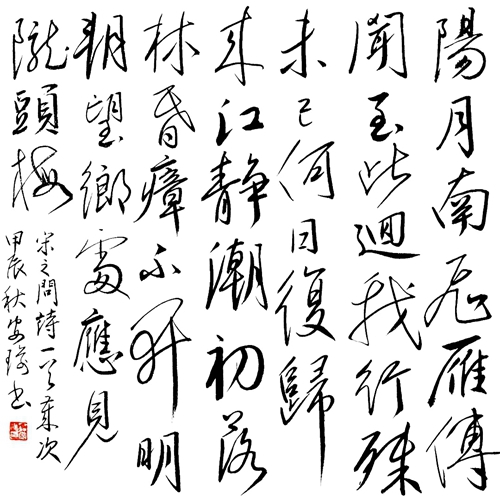 陽月南飛雁傳
聞至此迴我行殊
未已何日復歸
來江静潮初落
林昏瘴不开明
朝望鄉處應見
隴頭梅
宋之問詩一首歲次
甲辰秋安书